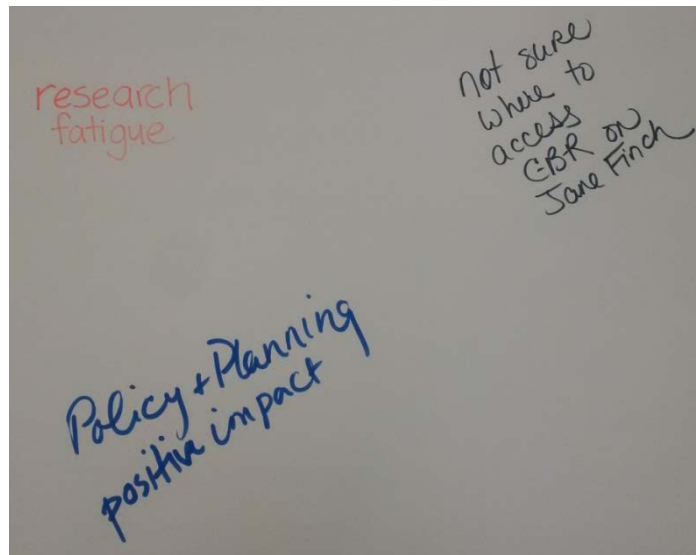 research
fatigue
not sure
where to
access
CBR on
Jane Finch
Policy + Planning
positive impact